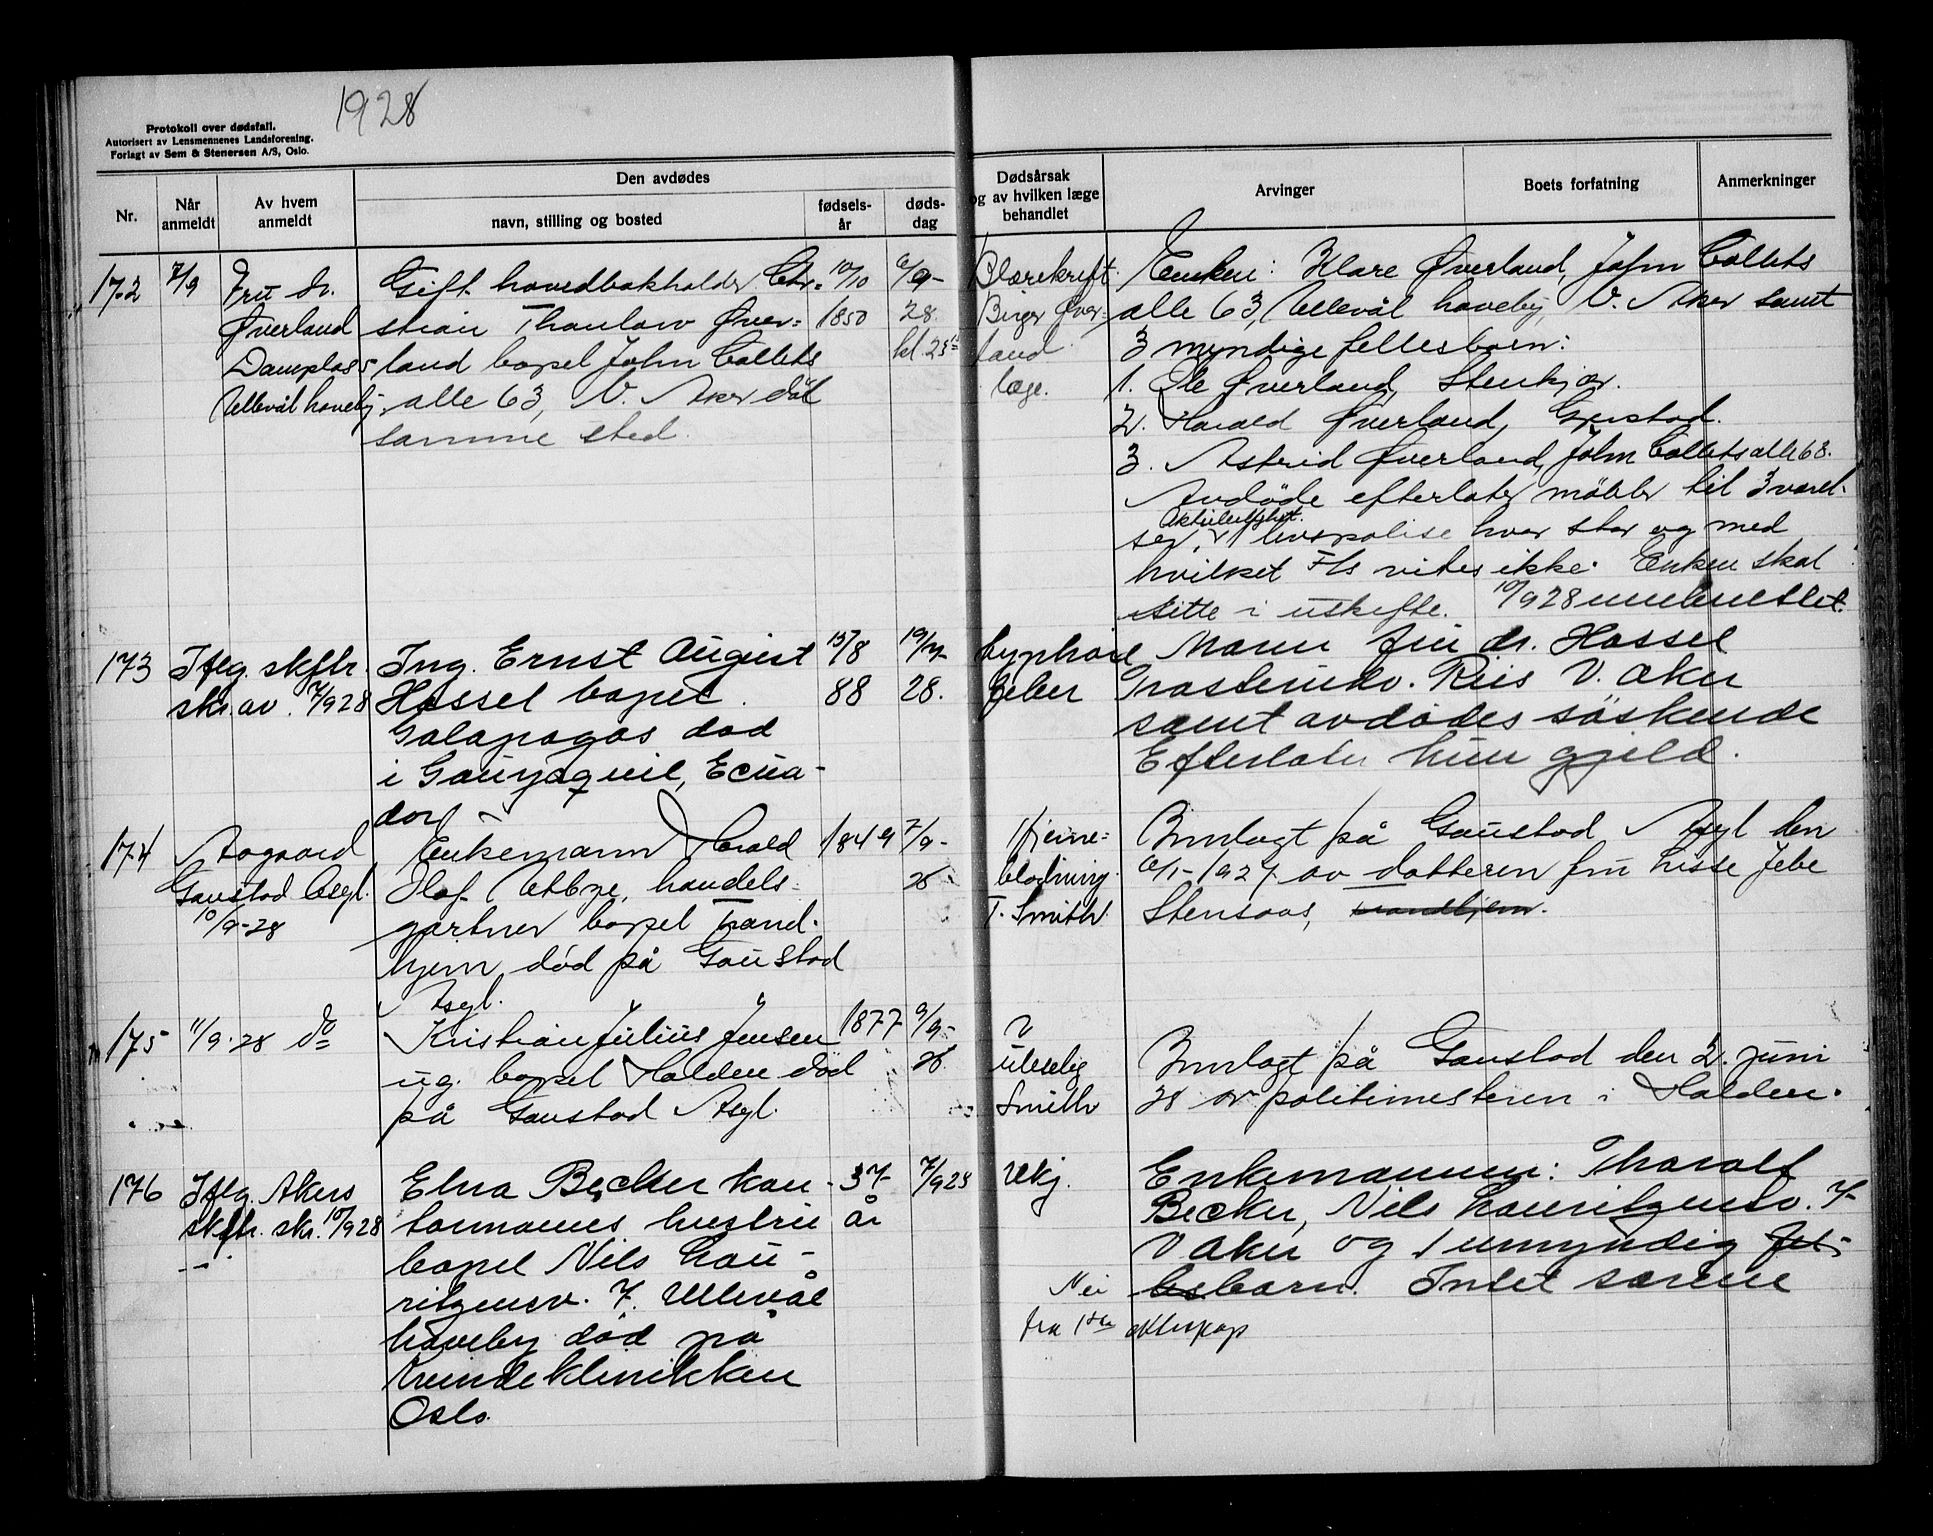 1928
Protokoll over dødsfall.
Autorisert av Lensmennenes Landsforening.
Forlagt av Sem & Stenersen A/S, Oslo.
Nr.
Når anmeldt
Av hvem anmeldt
Den avdødes
navn, stilling og bosted
fødsels-
år
døds-
dag
Dødsårsak
og av hvilken læge
behandlet
Arvinger
Boets forfatning
Anmerkninger
172
7/9
Fru dr.
Øverland
Damplass
Ullevål haveby
Gift hovedbokholder Chr-
stian Thaulow Øver=
land bopel John Collets
alle 63, V. Aker död
samme sted.
10/10
1850
6/9-
28.
kl. 23
Blærekreft
Birger Øver-
land
læge.
Enken: Klare Øverland, John Collets
alle 63, Ullevål haveby, V. Aker samt
3 myndige fellesbarn:
1. Ole Øverland, Stenkjær.
2. Harald Øverland, Gjerstad.
3. Astrid Øverland, John Collets alle 63.
Avdöde efterlater möbler til 3 værel-
ser, livspolise hvor stor og med
hvilket Fls vites ikke. Enken skal
sitte i uskifte. 10/9 28
173
Iflg. skftr.
skr. av. 7/9 28
Ing. Ernst August
Hassel bopel
Galapagos död
i Gauyaquil, Ecua-
dor
15/8
88
19/7-
28.
typhoid
feber
Moren fru dr. Hassel
V. Aker
samt avdödes söskende
Efterlater kun gjeld.
174
Aagaard
Gaustad Asyl.
10/9-28
Enkemann Harald
Olaf Utbye, handels-
gartner bopel Trond-
hjem, död på Gaustad
Asyl.
1849
7/9-
28
Hjerne=
blödning
T. Smith
Innlagt på Gaustad Asyl den
6/1-1927 av datteren fru Lisse Jebe
Stensaas, Trondhjem.
175
11/9-28
do
Kristian Julius Jensen
ug. bopel Halden död
på Gaustad Asyl.
1877
9/9-
28
uleselig
Smith
Innlagt på Gaustad den 2. juni
28 av politimesteren i Halden.
176
Iflg. Akers
skftr. skr. 10/9 28
Elna Becker kon-
tormannes hustru
bopel Nils Lau-
ritzensv. 7, Ullevål
haveby död på
Kvindeklinikken
Oslo.
37
år
7/9 28
Ukj.
Enkemannen: Tharalf
Becker, Nils Lauritzensv. 7
V Aker og 1 umyndig fel-
lesbarn. Intet særeie
Nei
fra 1ste ekteskap